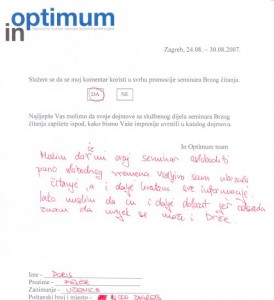 in optimum
Zagreb, 24.08. – 30.08.2007.
Slažem se da se moj komentar koristi u svrhu promocije seminara Brzog čitanja.
DA NE
Najljepše Vas molimo da svoje dojmove sa službenog dijela seminara Brzog
čitanja zapišete ispod, kako bismo Vaše impresije uvrstili u katalog dojmova.
In Optimum team
Mislim da će mi ovaj seminar osloboditi
puno slobodnog vremena. Vidljivo sam ubrzala
čitanje, a i dalje pratim sve informacije.
Zato mislim da ću i dalje dolaziti jer
znam da uvijek se može i brže.
Ime - DORIS
Prezime -
Zanimanje - UČENICA
Poštanski broj i mjesto - ZAGREB